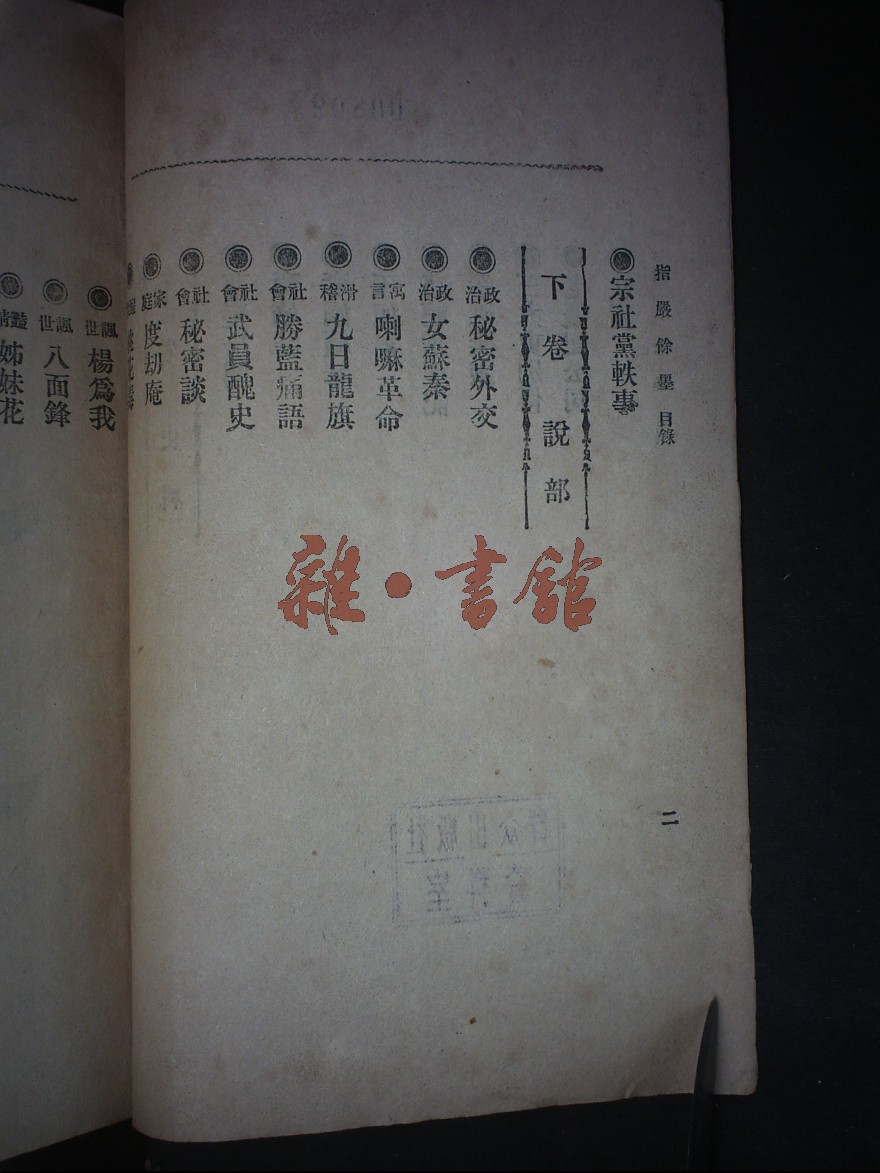 指嚴餘墨 目錄
宗社黨軼事
下卷 說部
政治 秘密外交
政治 女蘇秦
寓言 喇嘛革命
滑稽 九日龍旗
社會 勝藍痛語
社會 武員醜史
社會 秘密談
家庭 度劫庵
諷世 楊爲我
諷世 八面鋒
姊妹花
二
雜·書館